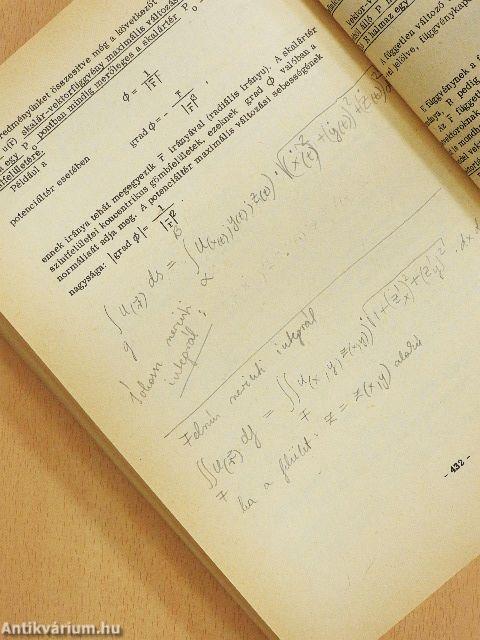 redményünket összesítve még a következőt
u(r) skalár-vektorfüggvény maximális változás
egy P₀ pontban mindig merőleges a skalártér P₀
ntfelületére.
Például a
Φ = 1/|r̄| ,
potenciáltér esetében
grad Φ = - r̄/|r̄|³ ,
ennek iránya tehát megegyezik r̄ irányával (radiális irányu). A skalártér
szintfelületei koncentrikus gömbfelületek, ezeknek grad Φ valóban a
normálisát adja meg. A potenciáltér maximális változási sebességének
nagysága: |grad Φ| = 1/|r̄|² .
∫g u(r̄) ds = ∫αβ u(x(t), y(t), z(t)) · √(ẋ(t)² + ẏ(t)² + ż(t)²) dt
szerinti
integrál:
Felszín szerinti integrál
∬F u(r̄) df = ∬F u(x, y, z(x,y)) √(1 + (z'x)² + (z'y)²) · dx d
ha a felület z = z(x,y) alakú
- 432 -
A független változó
jelölve, függvénykap
függvénynek a
pedig
Antikvárium.hu